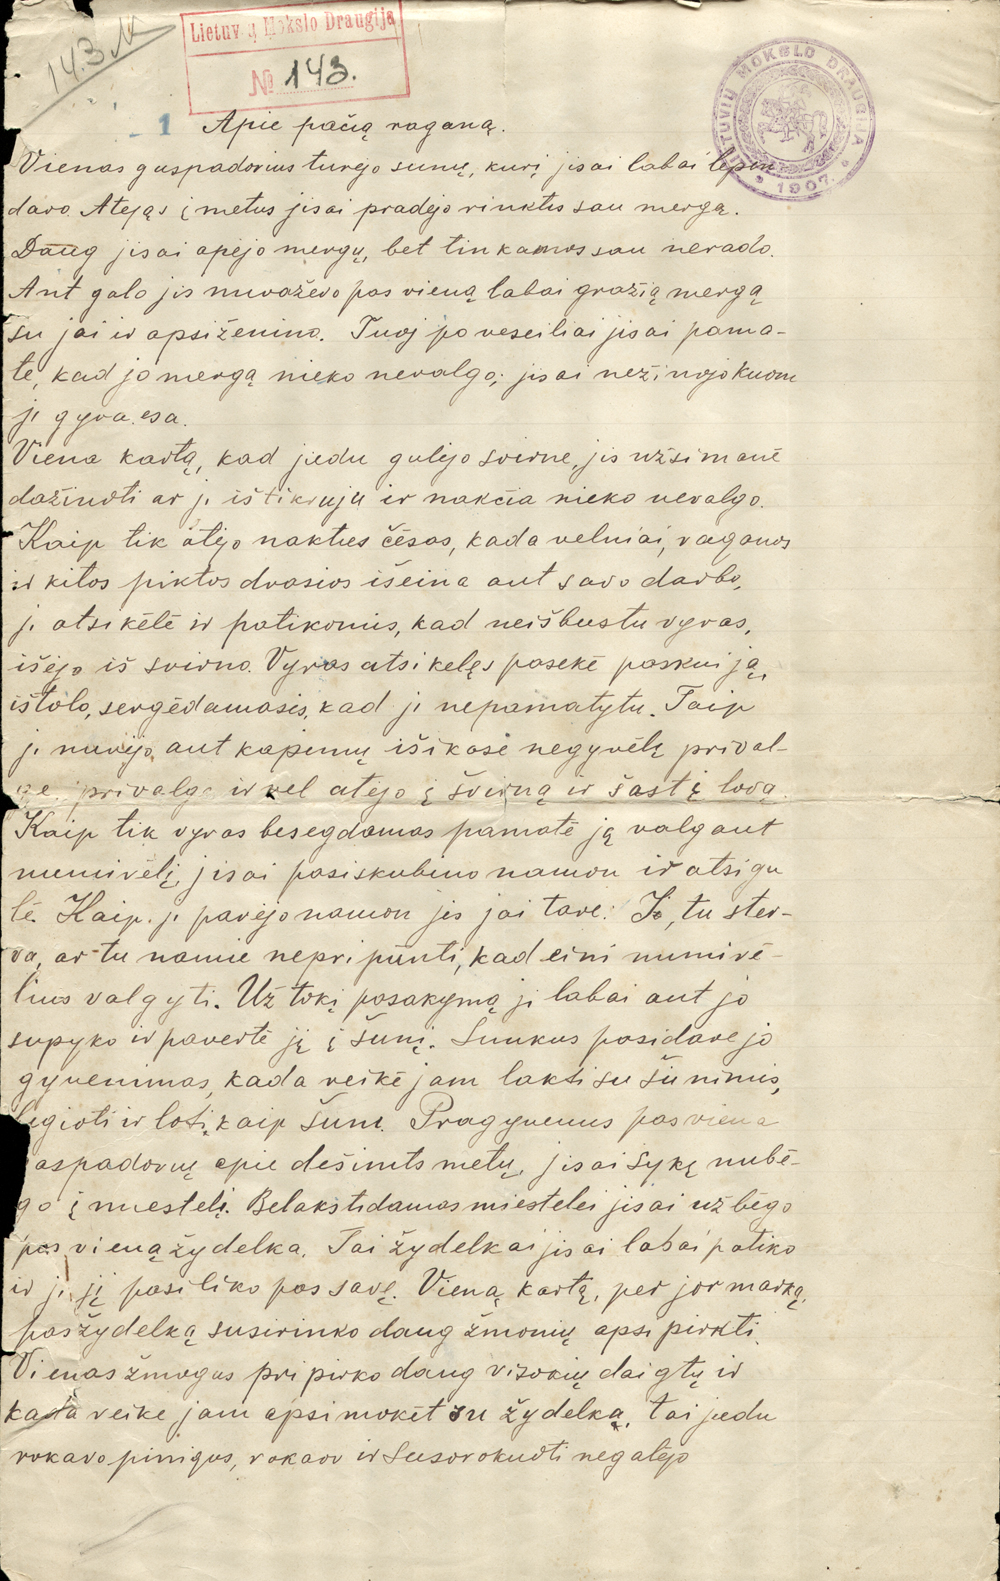 143
Lietuvių Mokslo Draugija
№ 143.
LIETUVIŲ MOKSLO DRAUGIJA
1907
1 Apie pačią raganą.
Vienas guspadorius turėjo sunų, kurį jisai labai lepin-
davo. Atėjąs į metus jisai pradėjo rinktis sau mergą.
Daug jisai apėjo mergų, bet tinkamos sau nerado.
Ant galo jis nuvaževo pas vieną labai gražią mergą
su jai ir apsiženino. Tuoj po veseiliai jisai pama-
te, kad jo mergą nieko nevalgo; jisai nežinojo kuom
ji gyva esa.
Viena kartą, kad jiedu gulėjo svirne, jis užsimanė
dažinoti ar ji ištikruju ir nakčia nieko nevalgo.
Kaip tik atėjo nakties čėsas, kada velniai, raganos
ir kitos piktos dvasios išeina ant savo darbo,
ji atsikėlė ir patikomis, kad neišbustu vyras,
išėjo iš svirno. Vyras atsikelęs pasekė paskui ją,
ištolo, sergėdamasis, kad ji nepamatytu. Taip
ji nuvėjo ant kapinių išikasė negyvėlę prival-
gė. privalgę ir vel atėjo į švirną ir šast į lovą.
Kaip tik vyras besegdamas pamatė ją valgant
numirėlį, jisai pasiskubino namon ir atsigu
lė. Kaip ji parėjo namon jis jai tarė: Jo, tu ster-
va, ar tu namie nepripunti, kad eini numirė-
lius valgyti. Už tokį pasakymą ji labai ant jo
supyko ir pavertė ję į šunį. Sunkus pasidare jo
gyvenimas, kada reikė jam lakti su šunimis,
bėgioti ir loti, kaip šuni. Pragyvenus pas viena
aspadorių apie dešimts metų, jisai sykę nubė-
go į miestelį. Belakstidamas miestelei jisai užbėgo
pas vieną žydelka. Tai žydelkai jisai labai patiko
ir ji ję pasiliko pas savę. Vieną kartą, per jormarką,
pas žydelką susirinko daug žmonių apsipirkti.
Vienas žmogus pripirko daug visokių daigtų ir
kada reike jam apsimokėt su žydelką, tai jiedu
rokavo pinigus, rokavo ir susorokuoti negalėjo